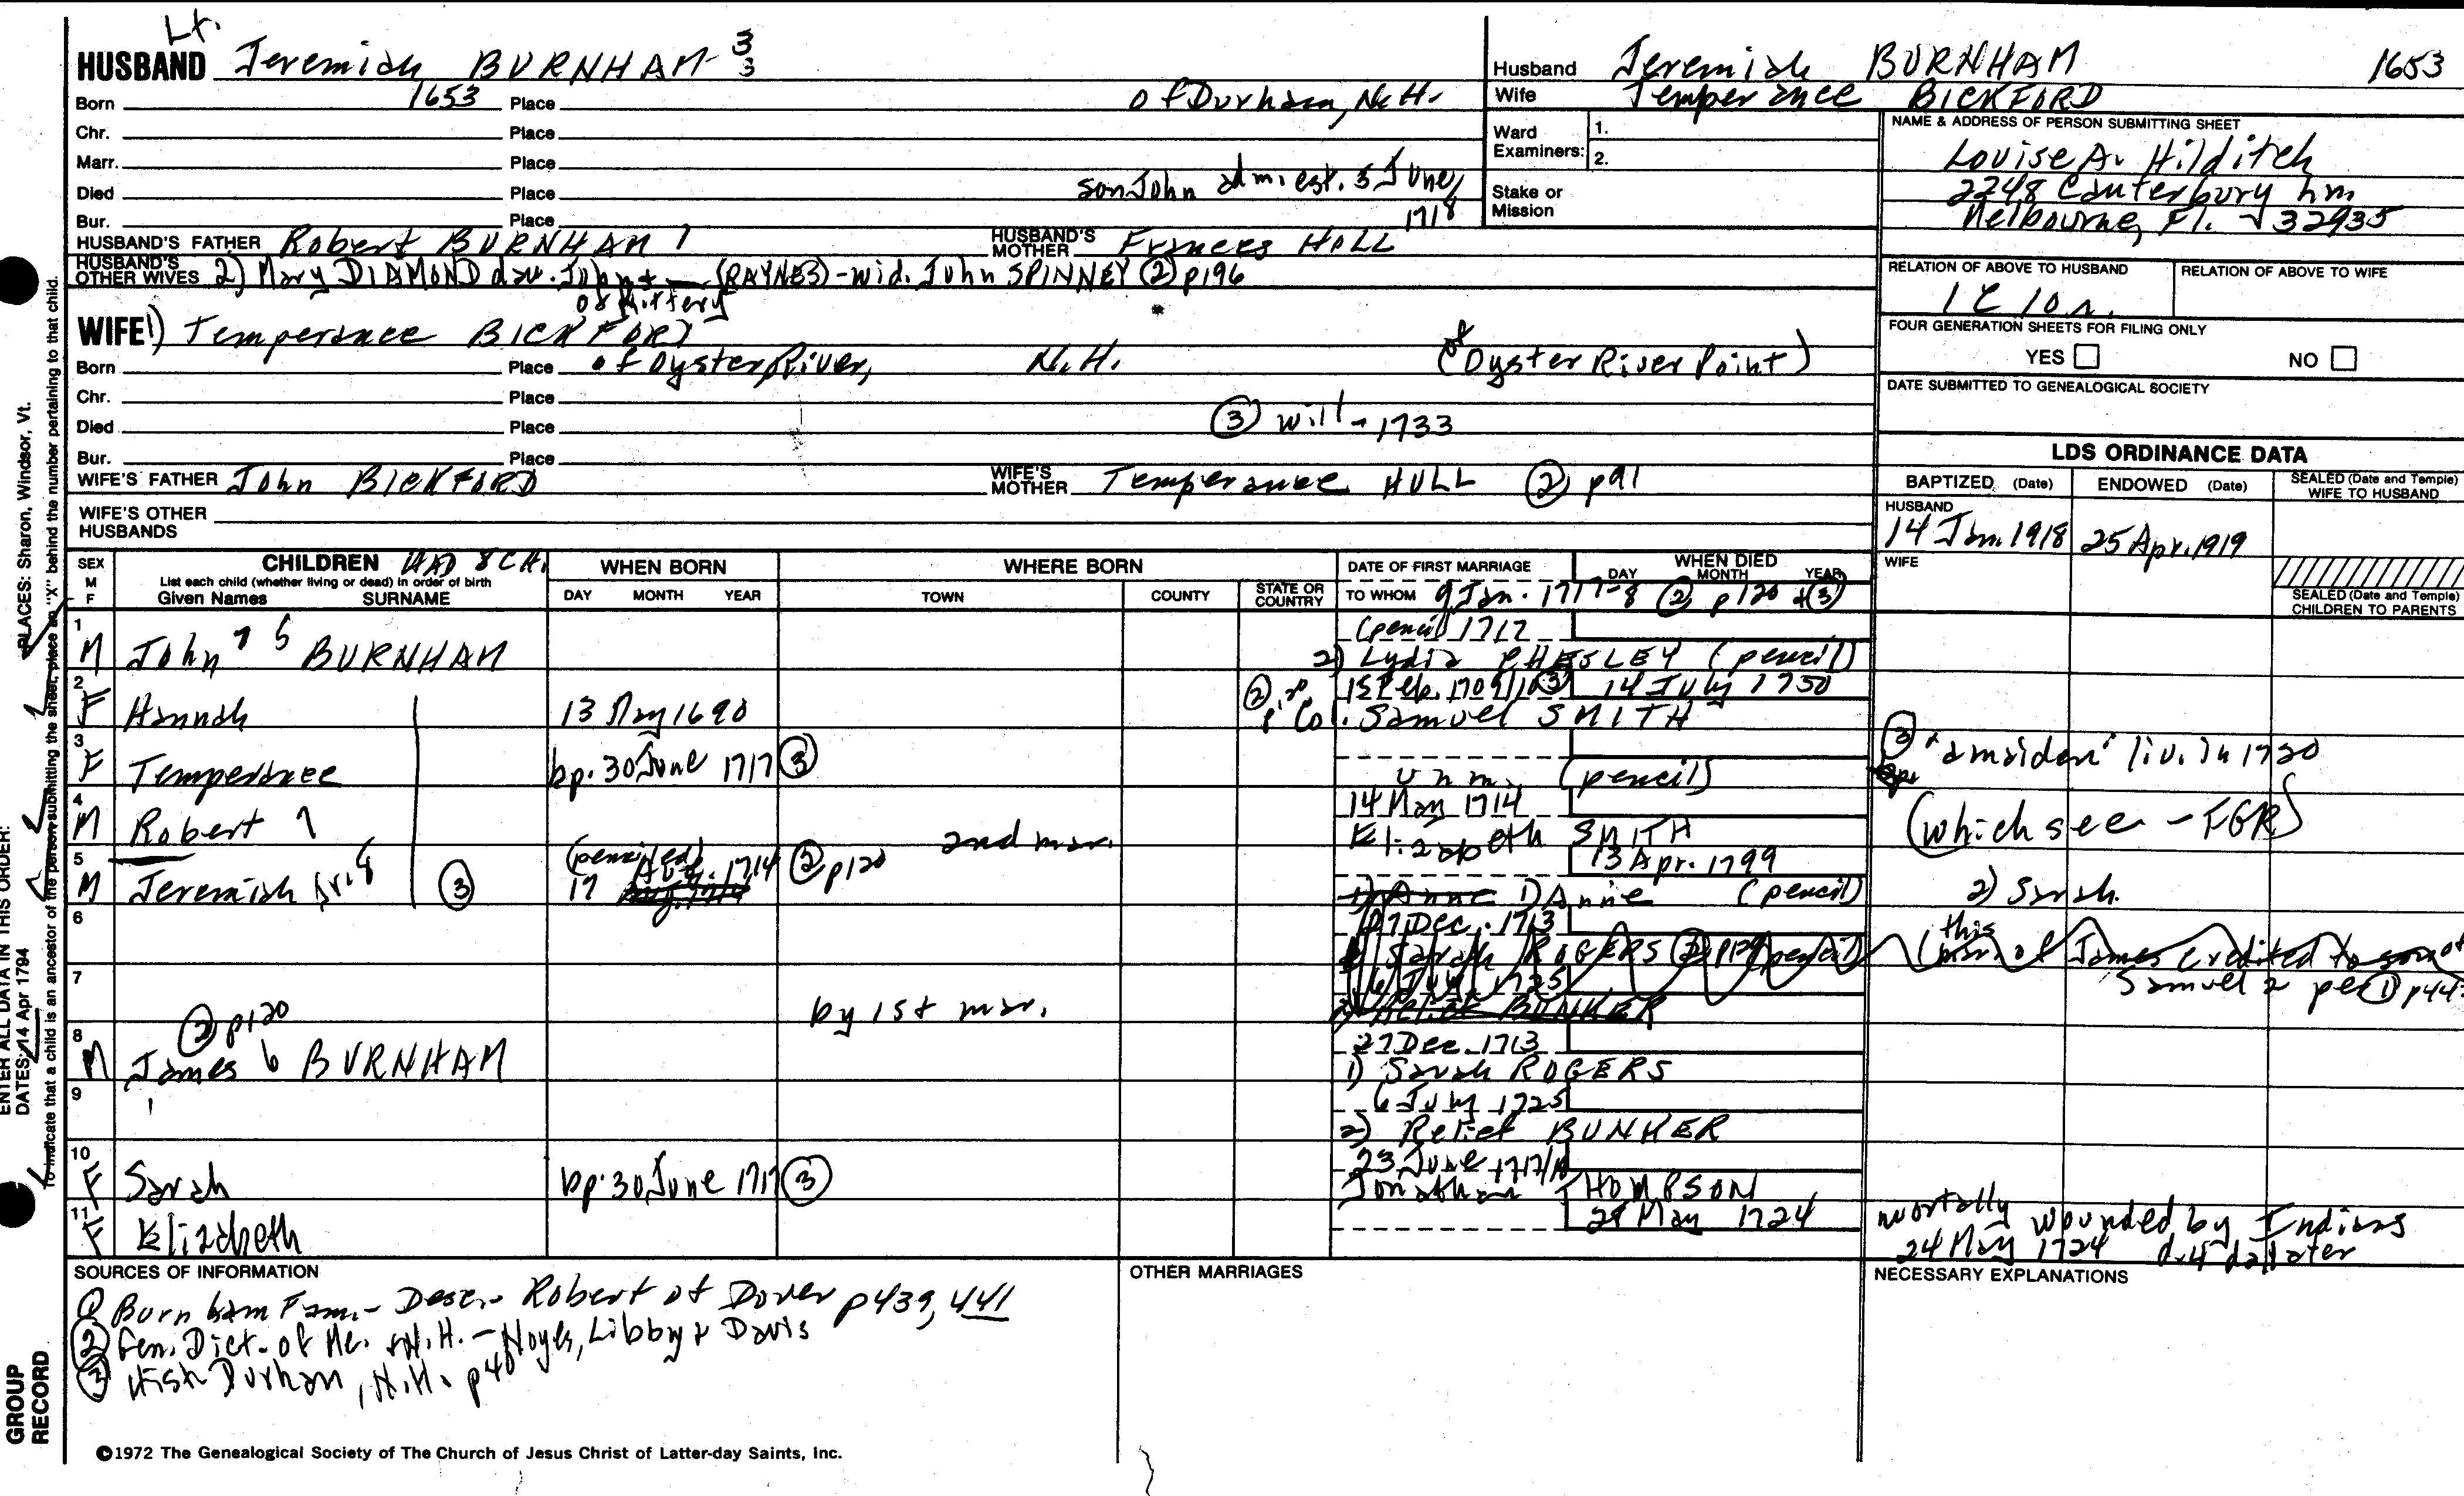 Lt.
HUSBAND Jeremiah BURNHAM 3 3
Born 1653 Place of Durham, N.H.
Chr. Place
Marr. Place
Died Place son John adm. est. 5 June, 1718
Bur. Place
HUSBAND'S FATHER Robert BURNHAM 1 HUSBAND'S MOTHER Frances HULL
HUSBAND'S OTHER WIVES 2) Mary DIAMOND dau. John + — (RAYNES) - wid. John SPINNEY (2) p196
of Kittery
WIFE 1) Temperance BICKFORD
Born Place of Oyster River, N.H. (of Oyster River Point)
Chr. Place
Died Place (3) will - 1733
Bur. Place
WIFE'S FATHER John BICKFORD WIFE'S MOTHER Temperance HULL (2) p91
WIFE'S OTHER HUSBANDS
Husband Jeremiah BURNHAM 1653
Wife Temperance BICKFORD
Ward Examiners: 1.
2.
Stake or Mission
NAME & ADDRESS OF PERSON SUBMITTING SHEET
Louise A. Hilditch
2248 Canterbury Ln
Melbourne, Fl. 32935
RELATION OF ABOVE TO HUSBAND RELATION OF ABOVE TO WIFE
1C 10r.
FOUR GENERATION SHEETS FOR FILING ONLY
YES NO
DATE SUBMITTED TO GENEALOGICAL SOCIETY
LDS ORDINANCE DATA
BAPTIZED (Date) ENDOWED (Date) SEALED (Date and Temple) WIFE TO HUSBAND
HUSBAND
14 Jan. 1918 25 Apr. 1919
WIFE
SEALED (Date and Temple) CHILDREN TO PARENTS
SEX M F
CHILDREN HAD 8 CH.
List each child (whether living or dead) in order of birth
Given Names SURNAME
WHEN BORN
DAY MONTH YEAR
WHERE BORN
TOWN COUNTY STATE OR COUNTRY
DATE OF FIRST MARRIAGE
TO WHOM
WHEN DIED
DAY MONTH YEAR
9 Jan. 1717-8 (2) p120 + (3)
(pencil 1717
1 M John 7 5 BURNHAM 2) Lydia CHESLEY (pencil)
2 F Hannah 13 May 1690 (2) p. 15 Feb. 1709/10 (3) 14 July 1750
Col. Samuel SMITH
3 F Temperance bp. 30 June 1717 (3) unm. (pencil) (3) "a maiden" liv. in 1720
4 M Robert 7 14 May 1714
Elizabeth SMITH (which see - FGR)
5 M Jeremiah Jr. 8 (3) (penciled) 17 Aug. 1714 (2) p120 2nd mar. 13 Apr. 1799
1) Anne 1) Annie (pencil) 2) Sarah
6 27 Dec. 1713
Sarah ROGERS (2) p120 (pencil) (this of James credited to son of Samuel 2 per (1) p44
7 6 July 1725
2) Relief BUNKER
by 1st mar.
(2) p120
8 M James 6 BURNHAM 27 Dec. 1713
1) Sarah ROGERS
9 6 July 1725
2) Relief BUNKER
10 F Sarah bp. 30 June 1717 (3) 23 June 1717/18
Jonathan THOMPSON
11 F Elizabeth 28 May 1724 mortally wounded by Indians
24 May 1724 d. 4 da. later
SOURCES OF INFORMATION
(1) Burnham Fam. - Desc. Robert of Dover p439, 441
(2) Gen. Dict. of Me. + N.H. - Noyes, Libby + Davis
(3) Hist. Durham, N.H. p40
OTHER MARRIAGES
NECESSARY EXPLANATIONS
©1972 The Genealogical Society of The Church of Jesus Christ of Latter-day Saints, Inc.
PLACES: Sharon, Windsor, Vt.
ENTER ALL DATA IN THIS ORDER:
DATES: 14 Apr 1794
To indicate that a child is an ancestor of the person submitting the sheet, place an "X" behind the number pertaining to that child.
GROUP RECORD